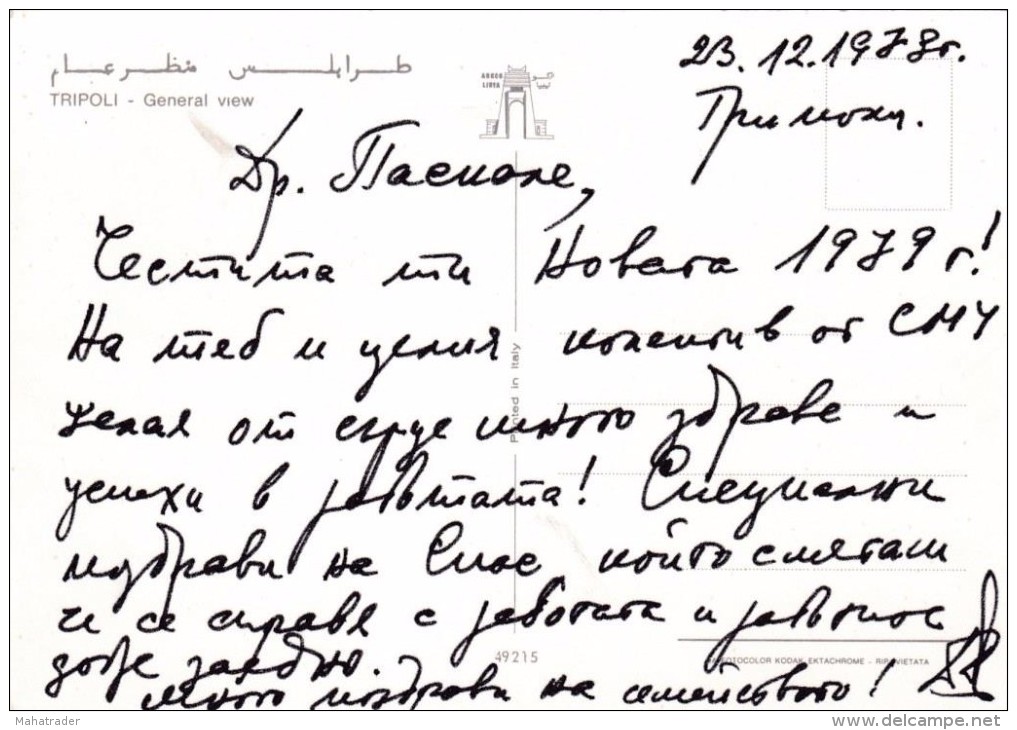 طرابلس منظر عام
TRIPOLI - General view
ARGCO LIBYA
23.12.1978г.
Триполи.
Др. Паскале,
Честита ти Новата 1979 г.!
На теб и целия колектив от СМУ
желая от сърце много здраве и
успехи в работата! Специални
поздрави на Спас, който смятам
че се справя с работата и работите
добре заедно.
Много поздрави на семейството!
Printed in Italy
49215
KODAK EKTACHROME - RIP. VIETATA
Mahatrader
www.delcampe.net